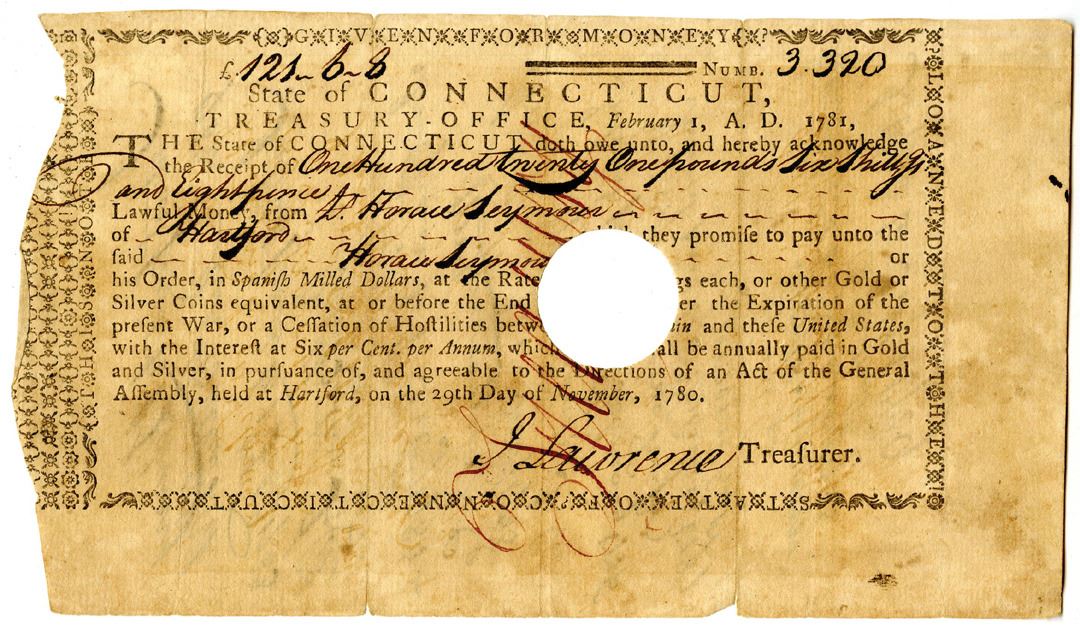 GIVEN FOR MONEY
£ 121 - 6 - 8 NUMB. 3.320
State of CONNECTICUT,
TREASURY-OFFICE, February 1, A. D. 1781,
THE State of CONNECTICUT doth owe unto, and hereby acknowledge
the Receipt of One Hundred twenty One pounds Six Shillgs
and eight pence
Lawful Money, from Lt. Horace Seymour
of Hartford they promiſe to pay unto the
ſaid Horace Seymour or
his Order, in Spaniſh Milled Dollars, at the Rate each, or other Gold or
Silver Coins equivalent, at or before the End the Expiration of the
preſent War, or a Ceſſation of Hoſtilities and theſe United States,
with the Intereſt at Six per Cent. per Annum, be annually paid in Gold
and Silver, in purſuance of, and agreeable to the Directions of an Act of the General
Aſſembly, held at Hartford, on the 29th Day of November, 1780.
J Lawrence Treaſurer.
LOANED TO THE
STATE OF CONNECTICUT
THIS NOTE